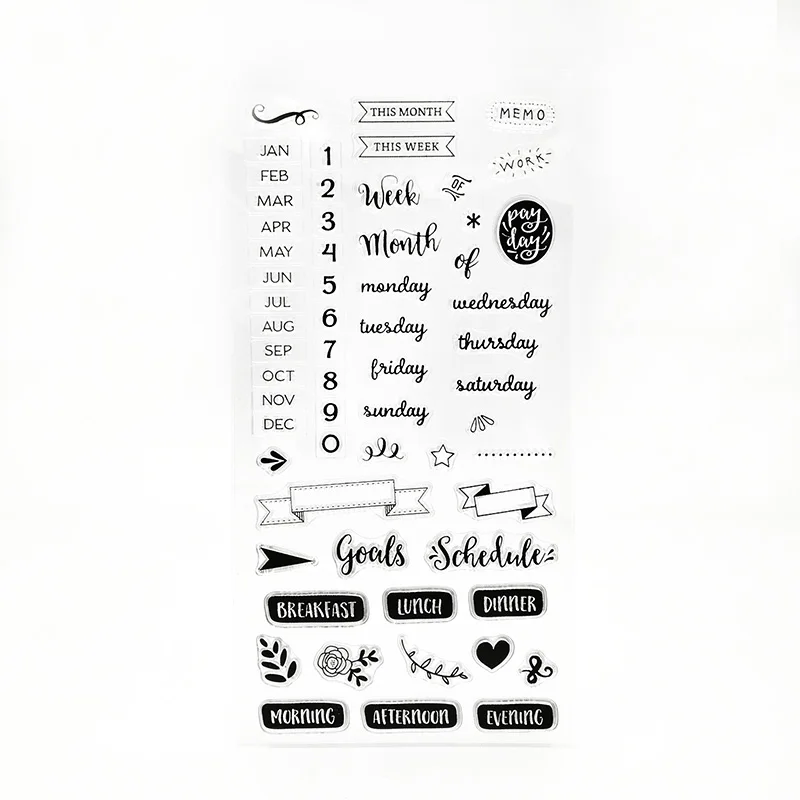 THIS MONTH
MEMO
THIS WEEK
WORK
JAN
FEB
MAR
APR
MAY
JUN
JUL
AUG
SEP
OCT
NOV
DEC
1
2
3
4
5
6
7
8
9
0
Week
OF
Month
of
*
pay
day
monday
tuesday
friday
sunday
wednesday
thursday
saturday
Goals
Schedule
BREAKFAST
LUNCH
DINNER
MORNING
AFTERNOON
EVENING